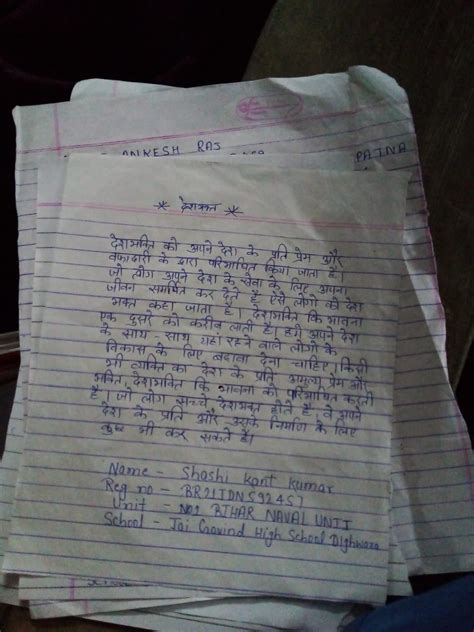 ANKESH RAJ
PATNA
* देशभक्त *
देशभक्ति को अपने देश के प्रति प्रेम और
वफादारी के द्वारा परिभाषित किया जाता है।
जो लोग अपने देश के सेवा के लिए अपना
जीवन समर्पित कर देते हैं, ऐसे लोगो को देश
भक्त कहा जाता है। देशभक्ति कि भावना
एक दुसरे को करीब लाती है। हमें अपने देश
के साथ-साथ यहां रहने वाले लोगो के
विकास के लिए बढावा देना चाहिए, किसी
भी व्यक्ति का देश के प्रति अमूल्य प्रेम और
भक्ति, देशभक्ति कि भावना को परिभाषित करती
है। जो लोग सच्चे देशभक्त होते हैं, वे अपने
देश के प्रति और उसके निर्माण के लिए
कुछ भी कर सकते हैं।
Name - Shashi kant kumar
Reg no - BR21IDN592457
Unit - NO2 BIHAR NAVAL UNIT
School - Jai Govind High School Dighwara